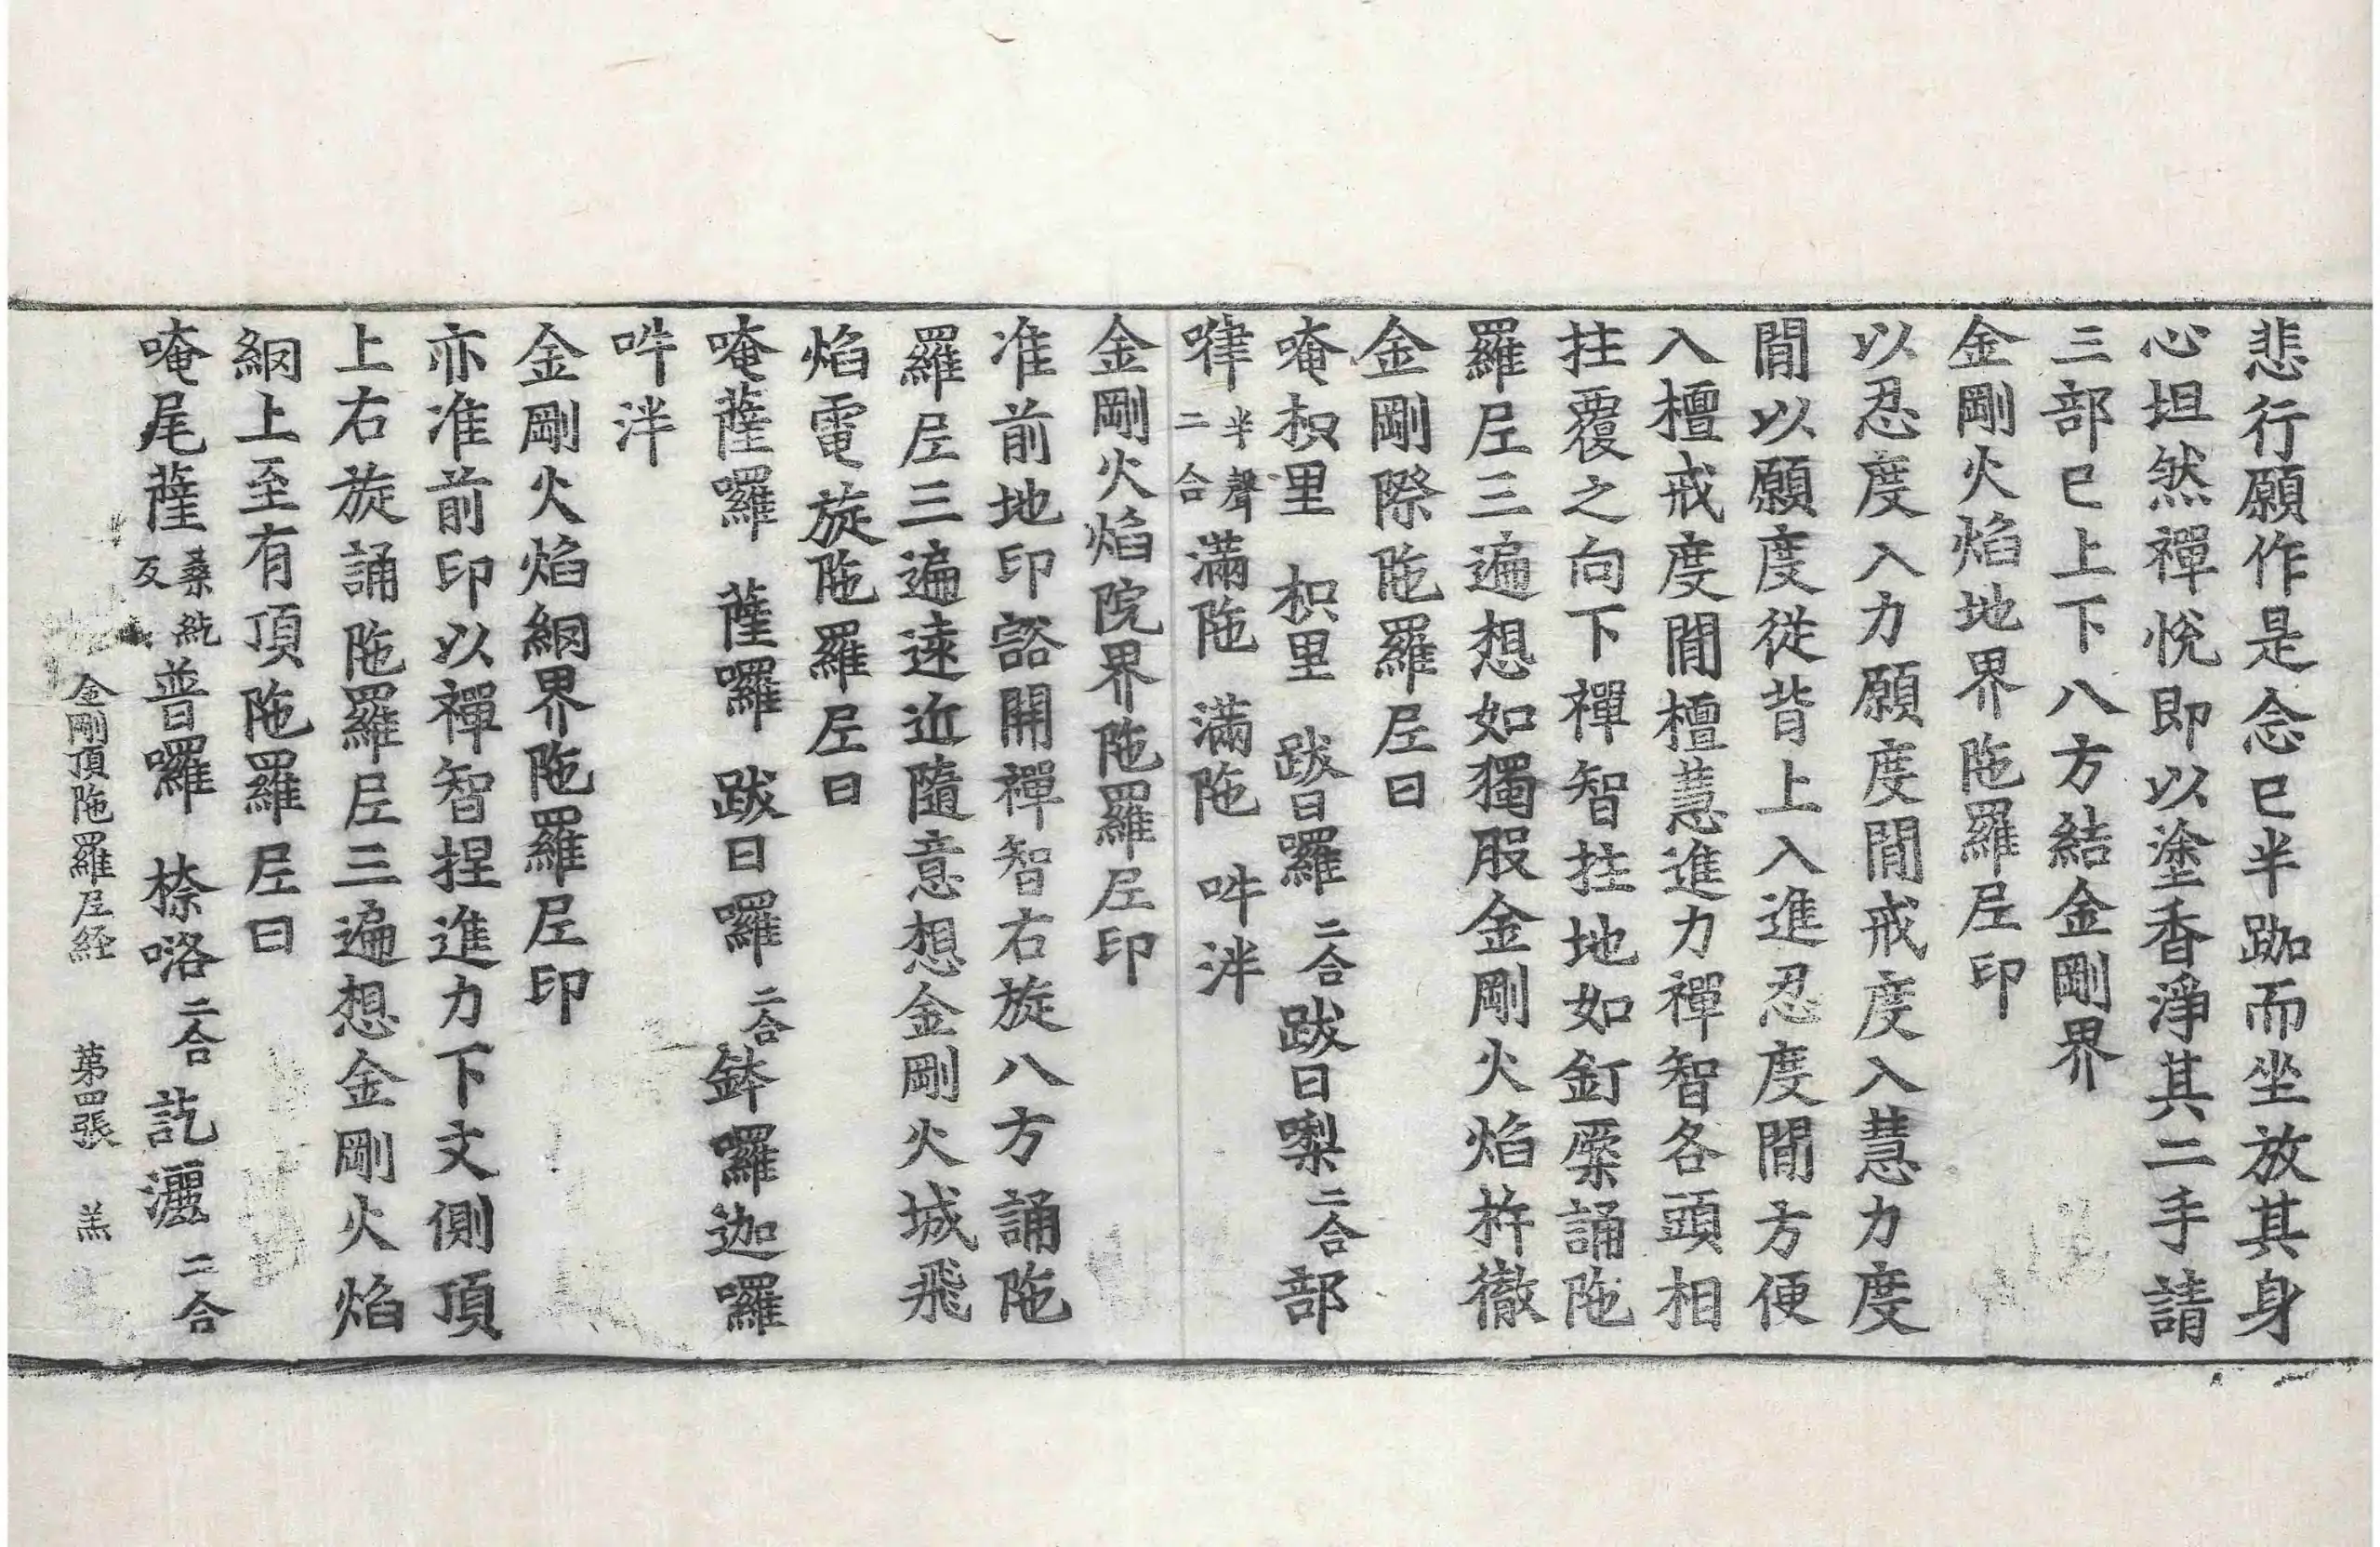 悲行願作是念已半跏而坐放其身
心坦然禪悅即以塗香淨其二手請
三部已上下八方結金剛界
金剛火焰地界陁羅𡰱印
以忍度入力願度閒戒度入慧力度
閒以願度從背上入進忍度閒方便
入檀戒度閒檀慧進力禪智各頭相
拄覆之向下禪智拄地如釘橜誦陁
羅𡰱三遍想如獨股金剛火焰杵徹
金剛際陁羅𡰱曰
唵枳里 枳里 跋日囉二合跋日㗚二合部
嘚半聲二合滿陁 滿陁 吽泮
金剛火焰院界陁羅𡰱印
准前地印豁開禪智右旋八方誦陁
羅𡰱三遍遠近隨意想金剛火城飛
焰電旋陁羅𡰱曰
唵薩囉 薩囉 跋日囉二合鉢囉迦囉
吽泮
金剛火焰網界陁羅𡰱印
亦准前印以禪智捏進力下文側頂
上右旋誦陁羅𡰱三遍想金剛火焰
網上至有頂陁羅𡰱曰
唵尾薩桑紇反普囉 捺咯二合訖灑二合
金剛頂陁羅𡰱経 第四張 羔